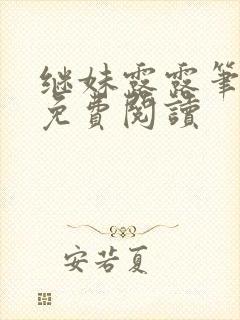 继妹露露笔
免費閱讀
安若夏